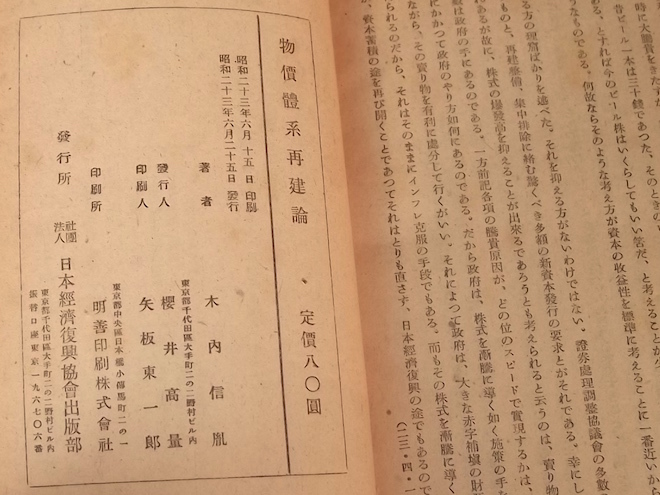 時に大騰貴をきたすが
昔ビール一本は三十錢であつた、そのときの
ある、とすれば今のビール株はいくらしてもいい筈だ、と考えることが
うなものである。何故ならそのような考え方が資本の收益性を標準に考えることに一番近いから
る方の理窟ばかりを述べた。それを抑える方がないわけではない、證券處理調整協議會の多數
ものと、再建整備、集中排除に絡む驚くべき多額の新資本發行の要求とがそれである。幸にし
にあるが故に、株式の爆發高を抑えることが出來るであろうとも考えられると云うのは、賣り物
數は政府の手にあるのである。一方前記各項の騰貴原因が、どの位のスピードで實現するかは、
にかかつて政府のやり方如何にあるのである。だから政府は、株式を漸騰に導く如く施策の手を
ながら、その賣り物を有利に處分して行くがいい。それによつて政府は、大きな赤字補塡の財
られるのだから、それはそのままにインフレ克服の手段でもある。而もその株式を漸騰に導く
が、資本蓄積の途を再び開くことであつてそれはとりも直さず、日本經濟復興の途でもあるので
(二三・四・一
物價體系再建論
定價八〇圓
昭和二十三年六月十五日印刷
昭和二十三年六月二十五日發行
著者 木内信胤
東京都千代田區大手町二の二野村ビル内
發行人 櫻井高量
印刷人 矢板東一郎
東京都中央區日本橋小傳馬町二の一
印刷所 明善印刷株式會社
發行所 社團法人 日本經濟復興協會出版部
東京都千代田區大手町二の二野村ビル内
振替口座東京一九六七〇六番